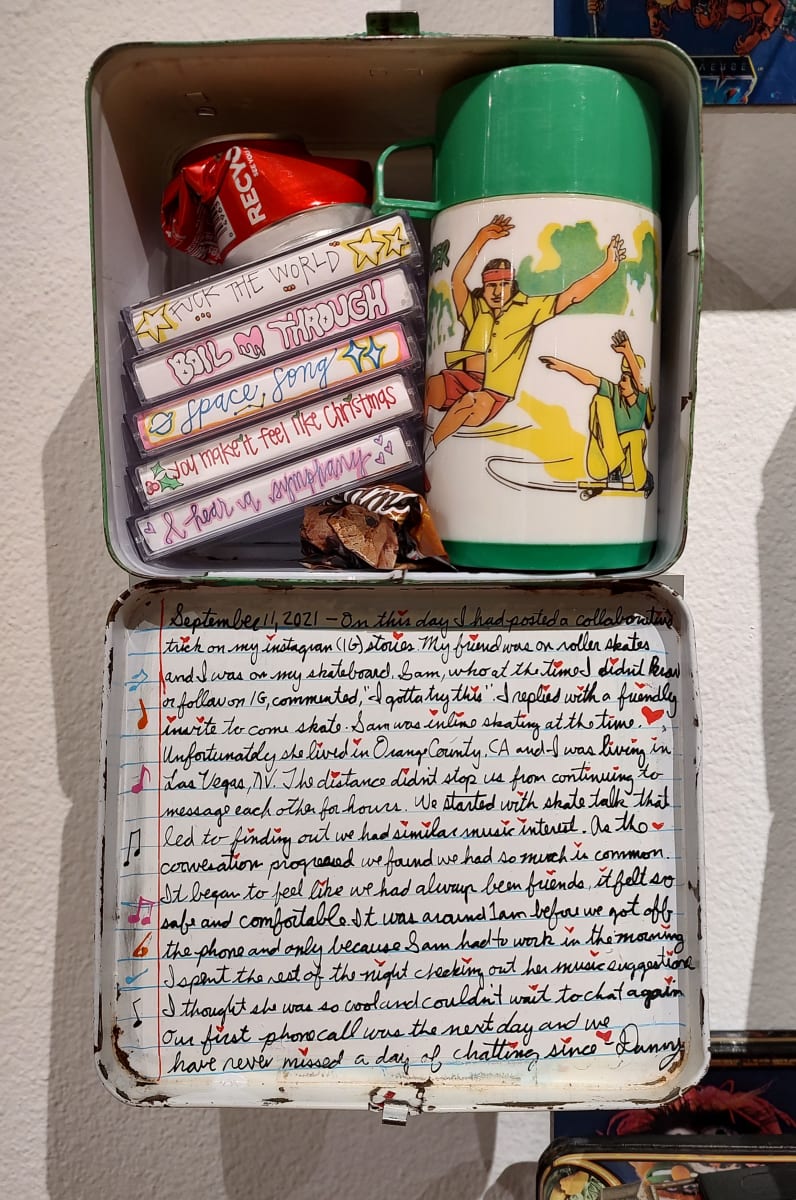 RECYC
SEE YOU
FUCK THE WORLD
BOIL THROUGH
space song
you make it feel like Christmas
I hear a symphany
September 11, 2021 - On this day I had posted a collaborative
trick on my instagran (IG) stories. My friend was on roller skates
and I was on my skateboard. Sam, who at the time I didn't know
or follow on IG, commented, "I gotta try this". I replied with a friendly
invite to come skate. Sam was inline skating at the time.
Unfortunately she lived in Orang County, CA and I was living in
Las Vegas, NV. The distance didn't stop us from continuing to
message each other for hours. We started with skate talk that
led to finding out we had similar music interest. As the
conversation progressed we found we had so much in common.
It began to feel like we had always been friends, it felt so
safe and comfortable. It was around 1am before we got off
the phone and only because Sam had to work in the morning
I spent the rest of the night checking out her music suggestions
I thought she was so cool and couldn't wait to chat again
Our first phone call was the next day and we
have never missed a day of chatting since - Danny